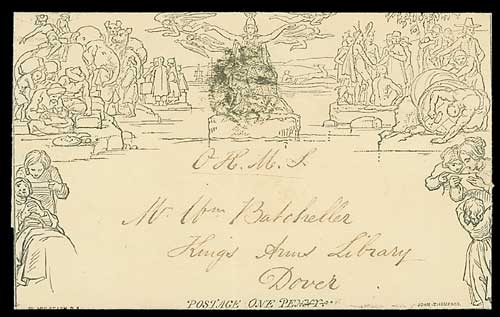 O. H. M. S.
Mr. Wm Batcheller
Kings Arms Library
Dover.
POSTAGE ONE PENNY.
JOHN THOMPSON